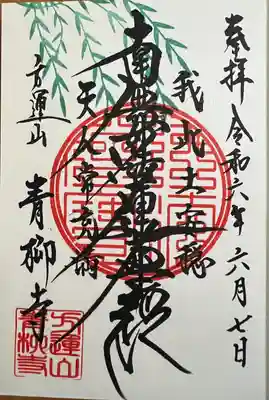 奉拝 令和六年六月七日
我此土安穏
南無妙法蓮華経
天人常充満
方運山
青柳寺
方運山
青柳寺